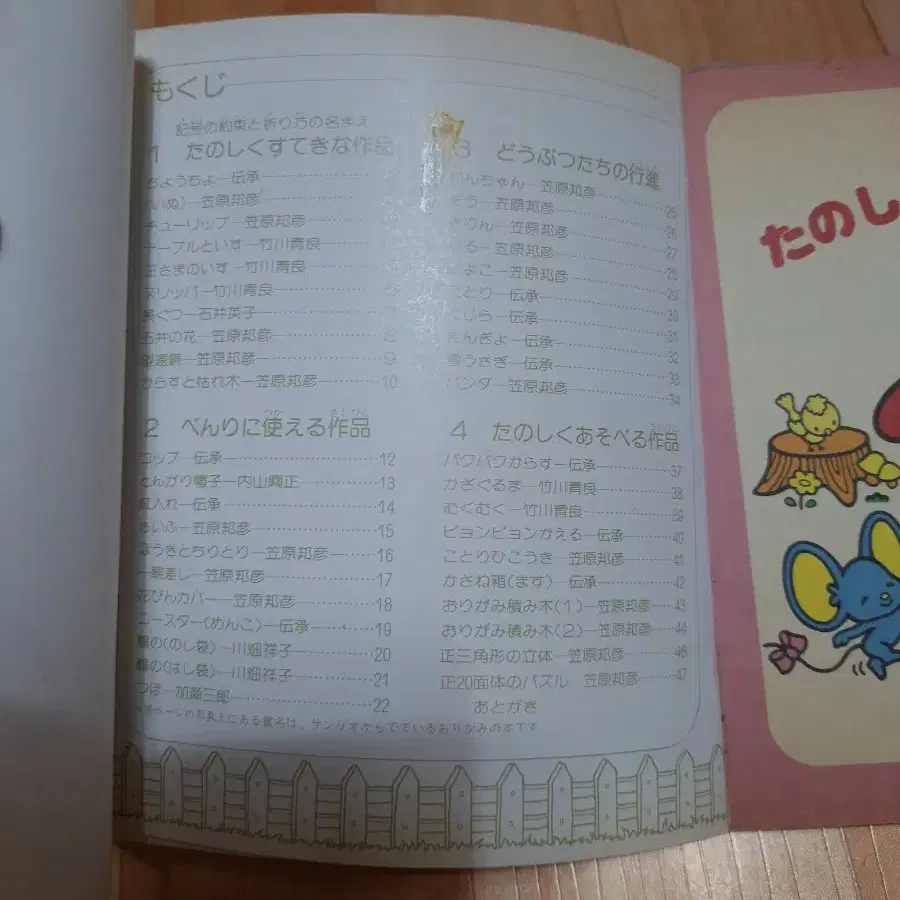 もくじ
記号の約束と折り方の名まえ
1 たのしくすてきな作品
ちょうちょ—伝承
(いぬ)—笠原邦彦
チューリップ—笠原邦彦
テーブルといす—竹川青良
王さまのいす—竹川青良
スリッパ—竹川青良 6
長ぐつ—石井英子 7
石井の花—笠原邦彦 8
望遠鏡—笠原邦彦 9
からすと枯れ木—笠原邦彦 10
2 べんりに使える作品
コップ—伝承 12
とんがり帽子—内山興正 13
紅入れ—伝承 14
さいふ—笠原邦彦 15
ほうきとちりとり—笠原邦彦 16
一輪差し—笠原邦彦 17
花びんカバー—笠原邦彦 18
コースター(めんこ)—伝承 19
鶴の(のし袋)—川畑祥子 20
鶴の(はし袋)—川畑祥子 21
つぼ—加瀬三郎 22
ページの写真上にある書名は、サンリオからでているおりがみの本です
3 どうぶつたちの行進
いんちゃん—笠原邦彦 25
ぞう—笠原邦彦 26
きりん—笠原邦彦 27
さる—笠原邦彦 28
ひよこ—笠原邦彦 29
ことり—伝承 30
くじら—伝承 31
きんぎょ—伝承 32
雪うさぎ—伝承 33
パンダ—笠原邦彦 34
4 たのしくあそべる作品
パクパクからす—伝承 37
かざぐるま—竹川青良 38
むくむく—竹川青良 39
ピョンピョンがえる—伝承 40
ことりひこうき—笠原邦彦 41
かさね箱(ます)—伝承 42
おりがみ積み木(1)—笠原邦彦 43
おりがみ積み木(2)—笠原邦彦 44
正三角形の立体—笠原邦彦 46
正20面体のパズル 笠原邦彦 47
あとがき
たのし